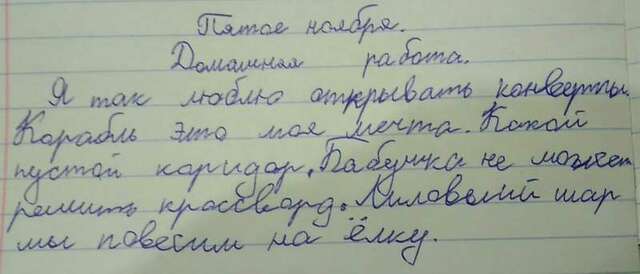 Пятое ноября.
Домашная работа.
Я так люблю открывать конверты.
Корабль это моя мечта. Какой
пустой каридор. Бабушка не может
решить кроссворд. Лиловый шар
мы повесим на ёлку.